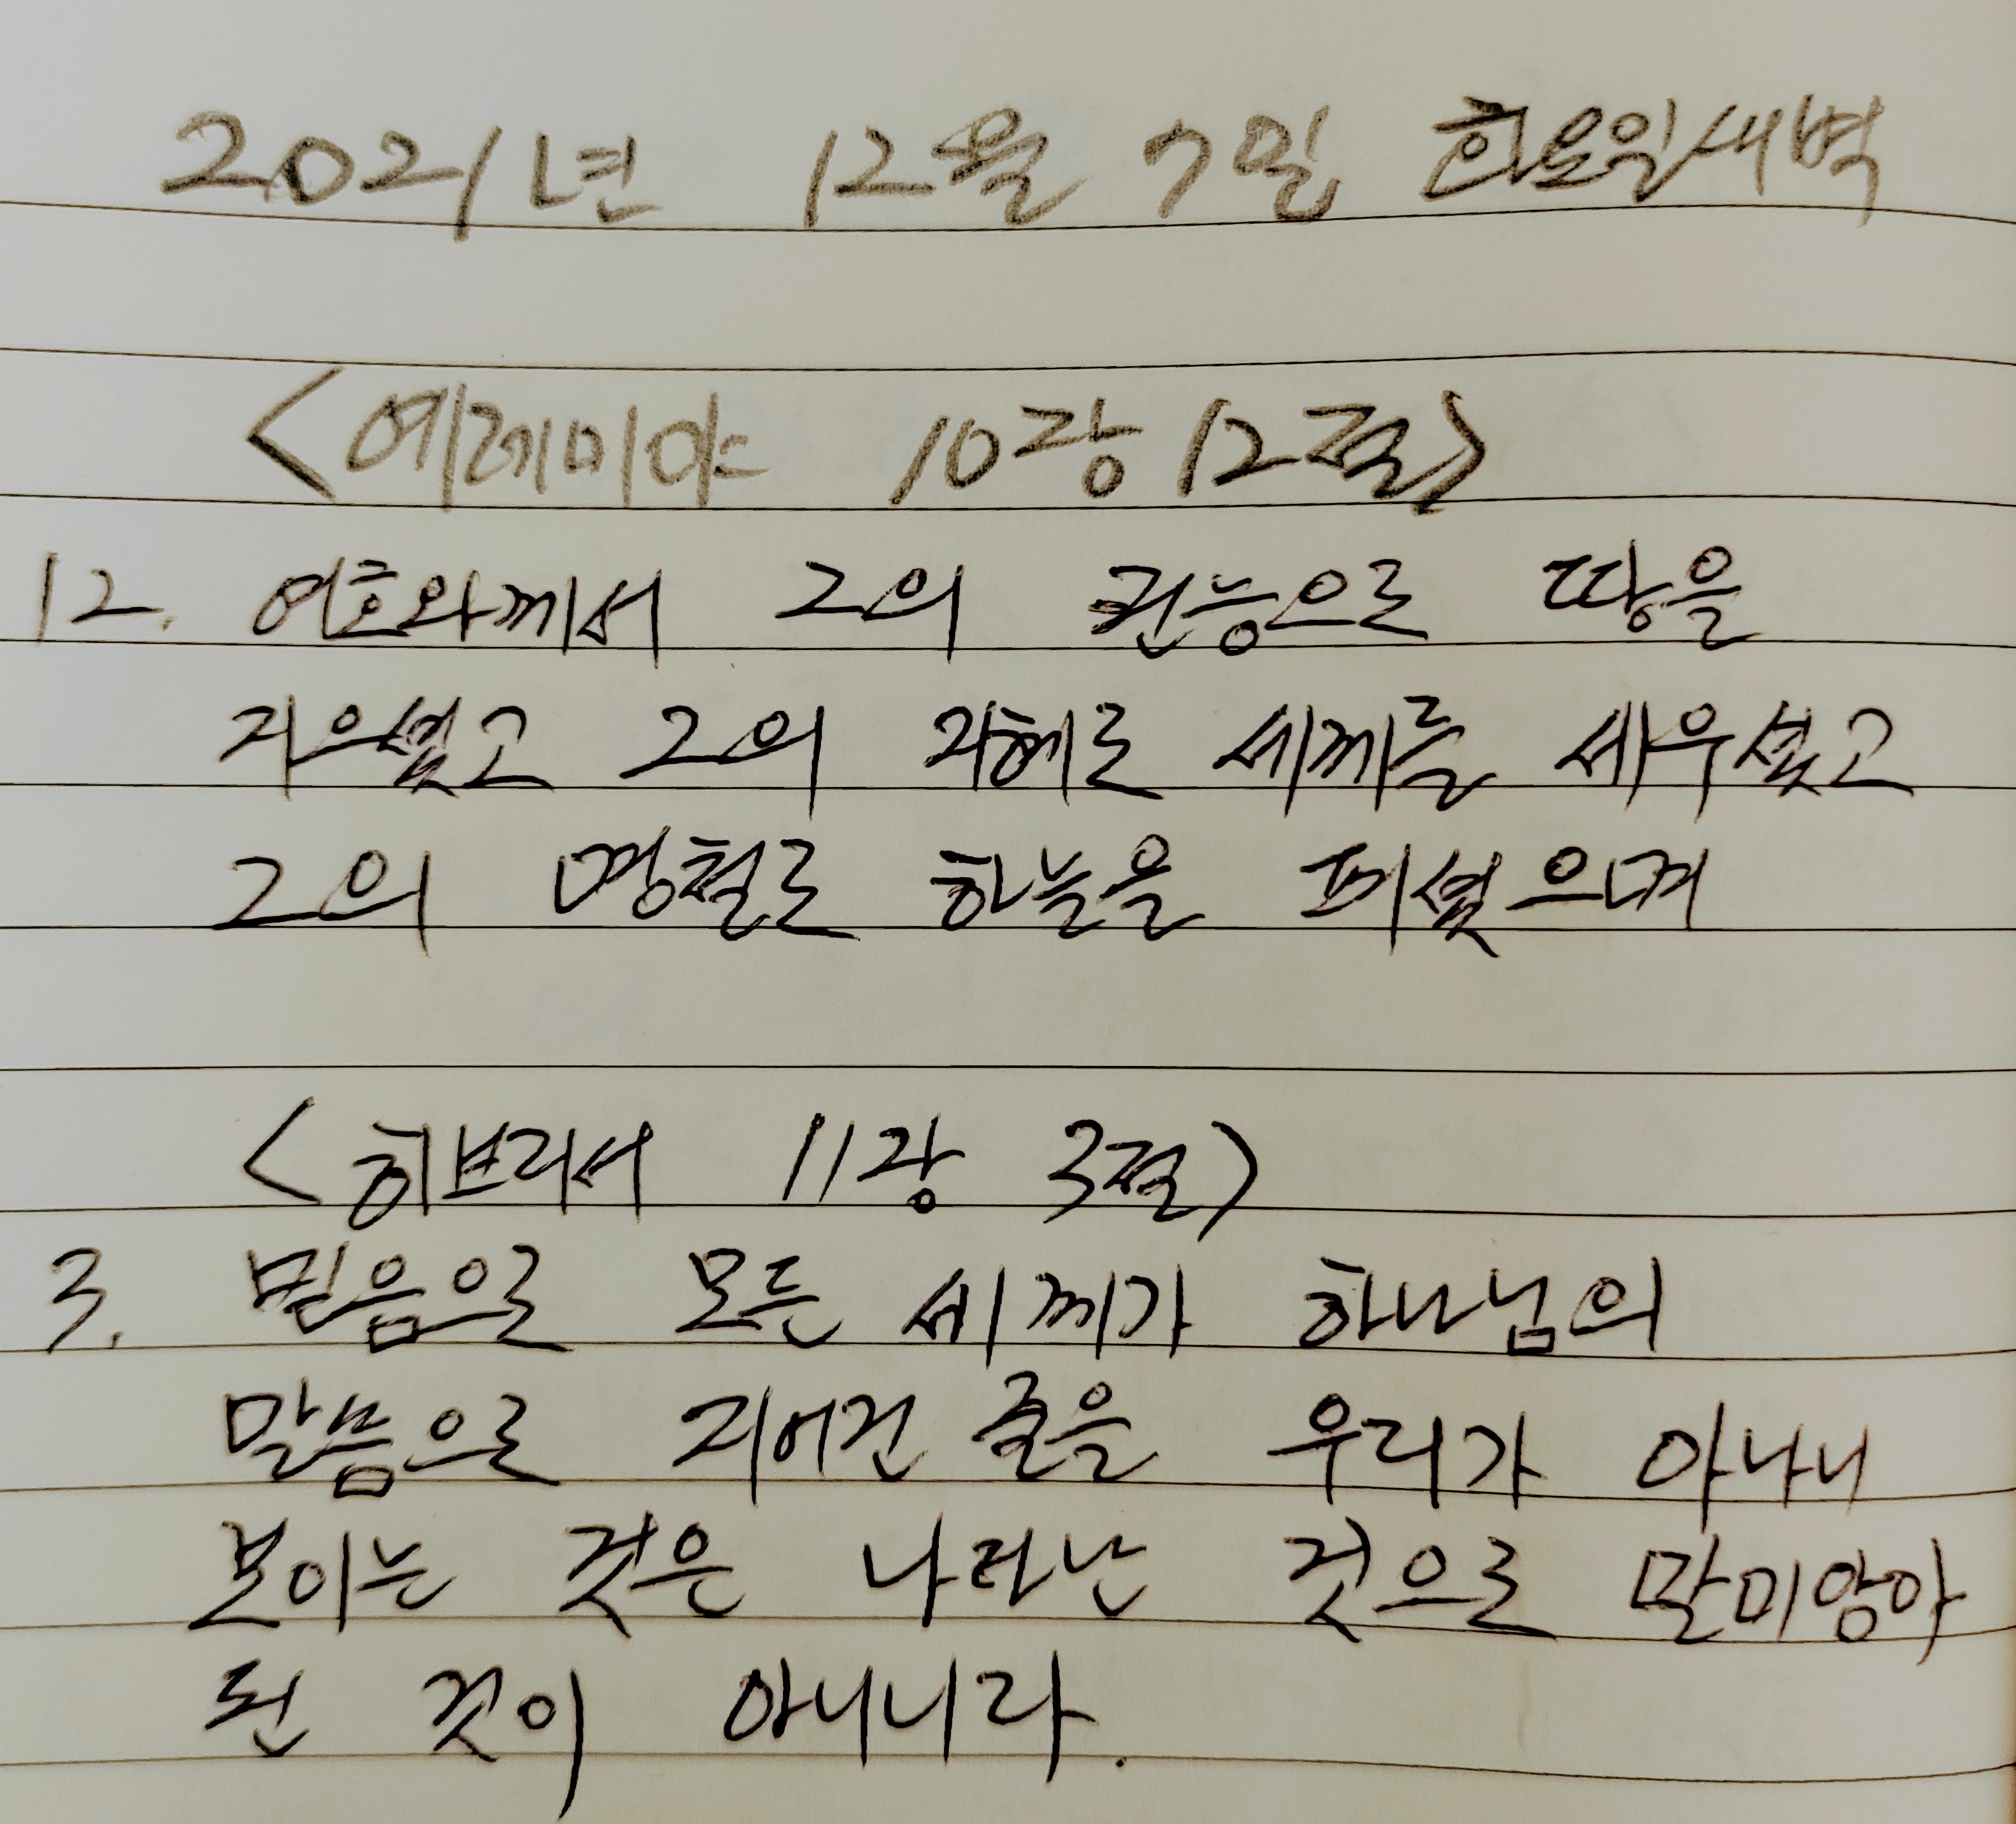 2021년 12월 7일 화요일새벽
<예레미야 10장 12절>
12. 여호와께서 그의 권능으로 땅을
지으셨고 그의 지혜로 세계를 세우셨고
그의 명철로 하늘을 펴셨으며
<히브리서 11장 3절>
3. 믿음으로 모든 세계가 하나님의
말씀으로 지어진 줄을 우리가 아나니
보이는 것은 나타난 것으로 말미암아
된 것이 아니니라.